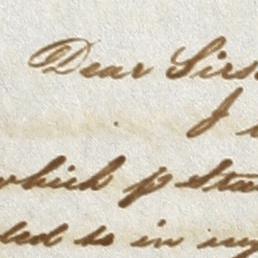 Dear Sirs
I
which p Sta
led to in my